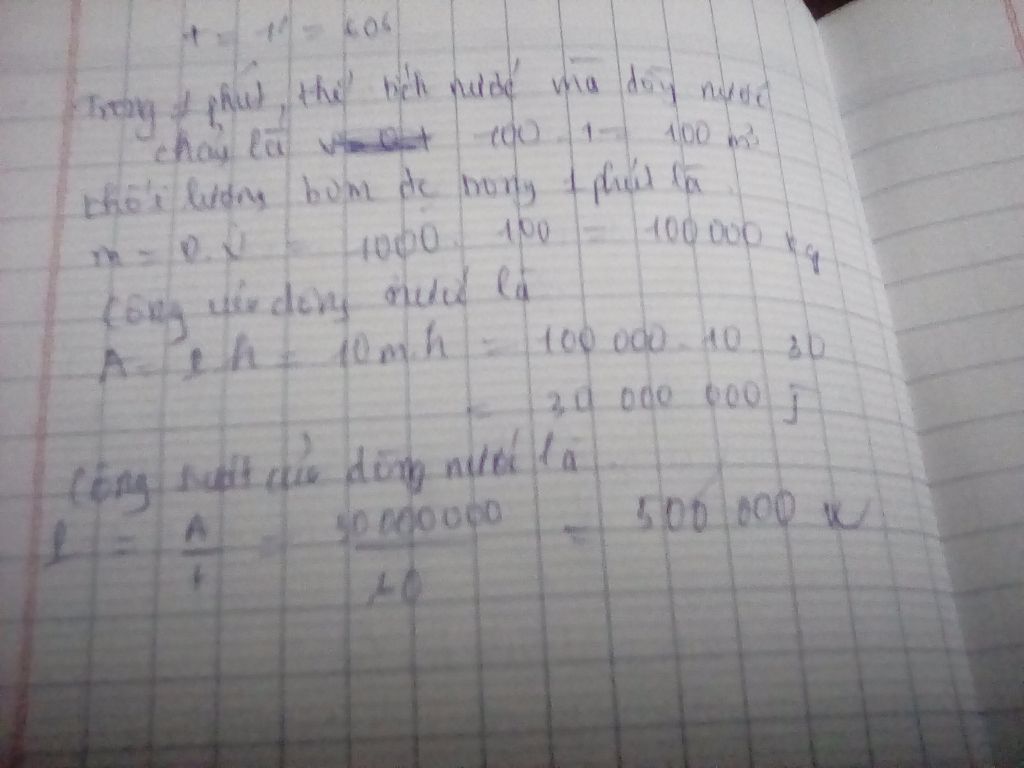 t = 1' = 60s
Trong 1 phút, thể tích nước mà dòng nước
chảy là V = 100 . 1 = 100 m³
khối lượng bơm đc trong 1 phút là
m = D.V = 1000 . 100 = 100 000 kg
Công của dòng nước là
A = P h = 10 m h = 100 000 . 10 30
= 30 000 000 J
Công suất của dòng nước là
P = A/t = 30 000 000/60 = 500 000 W